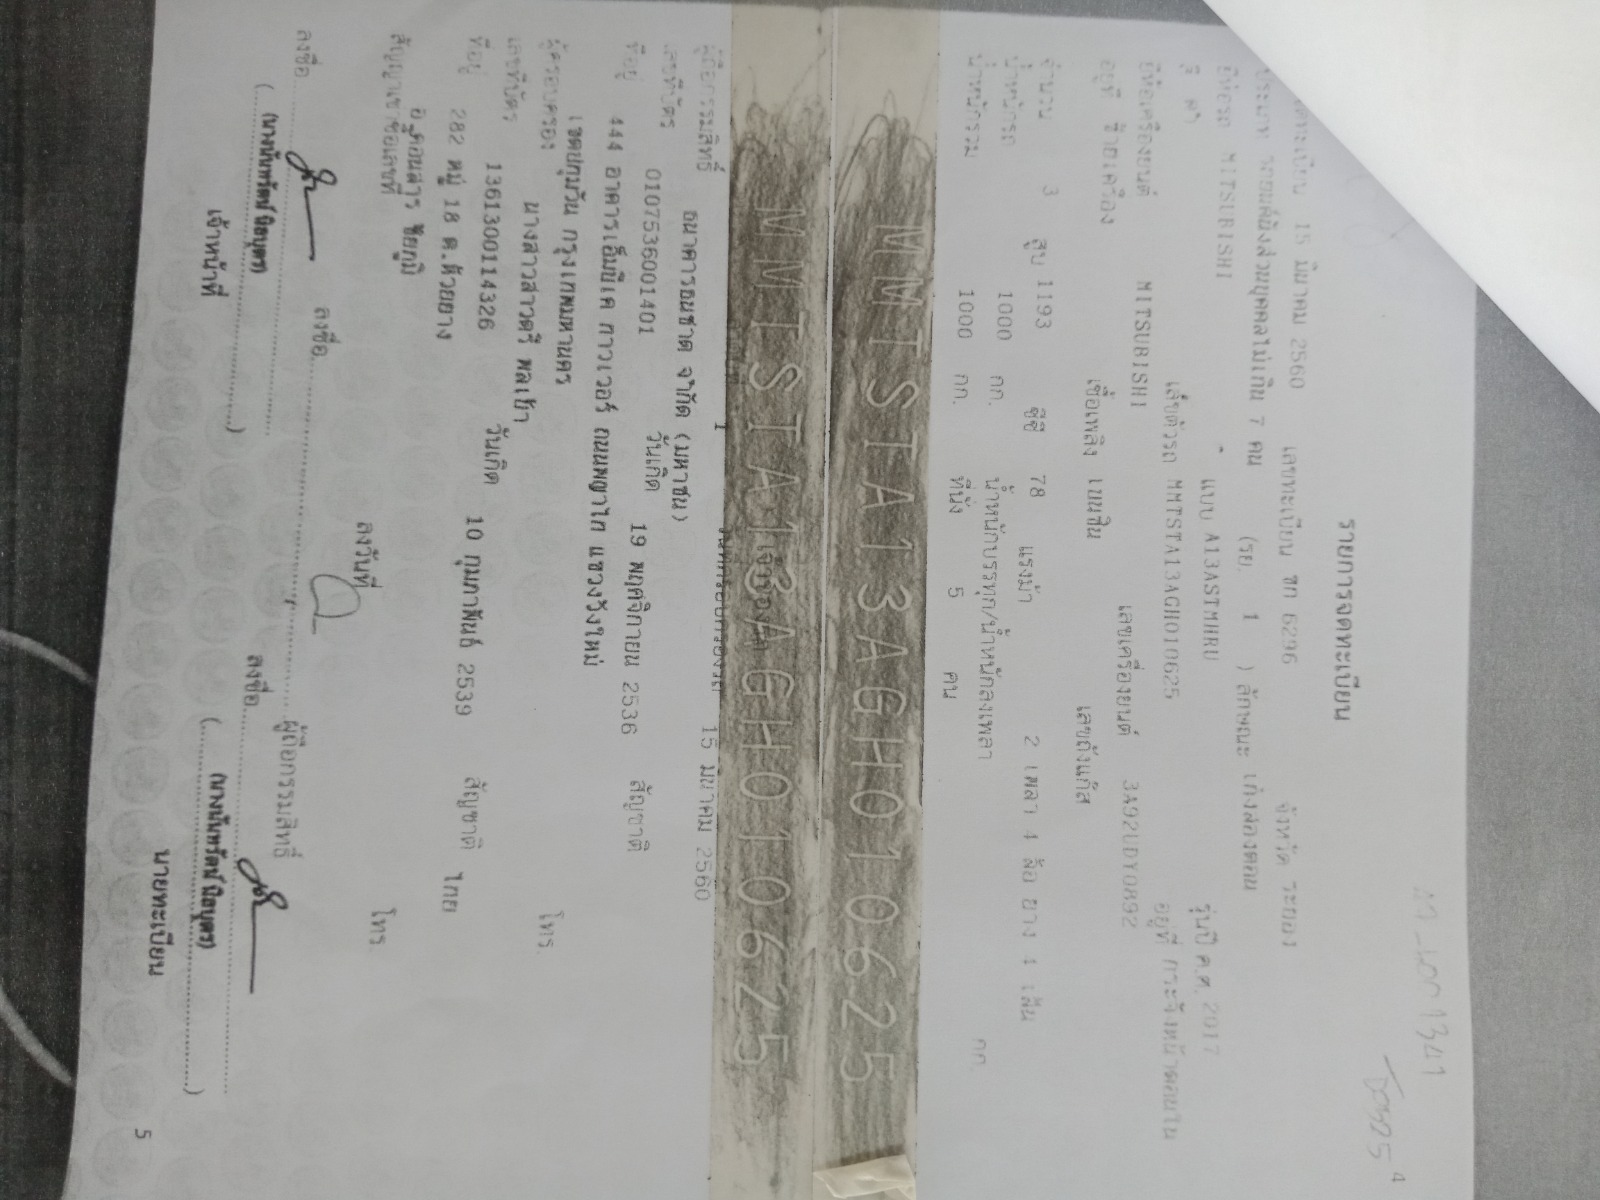 รายการจดทะเบียน
15 มีนาคม 2560 เลขทะเบียน ขก 6296 จังหวัด ระยอง
ประเภท รถยนต์นั่งส่วนบุคคลไม่เกิน 7 คน (รย. 1 ) ลักษณะ เก๋งสองตอน
ยี่ห้อรถ MITSUBISHI แบบ A13ASTMHRU รุ่นปี ค.ศ. 2017
สี เลขตัวรถ MMTSTA13AGH010625 อยู่ที่
ยี่ห้อเครื่องยนต์ MITSUBISHI เลขเครื่องยนต์ 3A92UDY0892
อยู่ที่ เชื้อเพลิง เบนซิน เลขถังแก๊ส
จำนวน 3 สูบ 1193 ซีซี 78 แรงม้า 2 เพลา 4 ล้อ ยาง 4 เส้น
น้ำหนักรถ 1000 กก. น้ำหนักบรรทุก/น้ำหนักลงเพลา กก
น้ำหนักรวม 1000 กก. ที่นั่ง 5 คน
MMTSTA13AGH010625
MMTSTA13AGH010625
เจ้าของรถ
15 มีนาคม 2560
ผู้ถือกรรมสิทธิ์ ธนาคารธนชาต จำกัด (มหาชน)
เลขที่บัตร 0107536001401 วันเกิด 19 พฤศจิกายน 2536 สัญชาติ
ที่อยู่ 444 อาคารเอ็มบีเค ทาวเวอร์ ถนนพญาไท แขวงวังใหม่
เขตปทุมวัน กรุงเทพมหานคร โทร.
ผู้ครอบครอง นางสาวสาวตรี พลเย้า
เลขที่บัตร 1361300114326 วันเกิด 10 กุมภาพันธ์ 2539 สัญชาติ ไทย
ที่อยู่ 282 หมู่ 18 ต.ห้วยยาง
อ.คอนสาร ชัยภูมิ โทร.
สัญญาเช่าซื้อเลขที่ ลงวันที่
ลงชื่อ ลงชื่อ ผู้ถือกรรมสิทธิ์
ลงชื่อ
เจ้าหน้าที่
นายทะเบียน
5